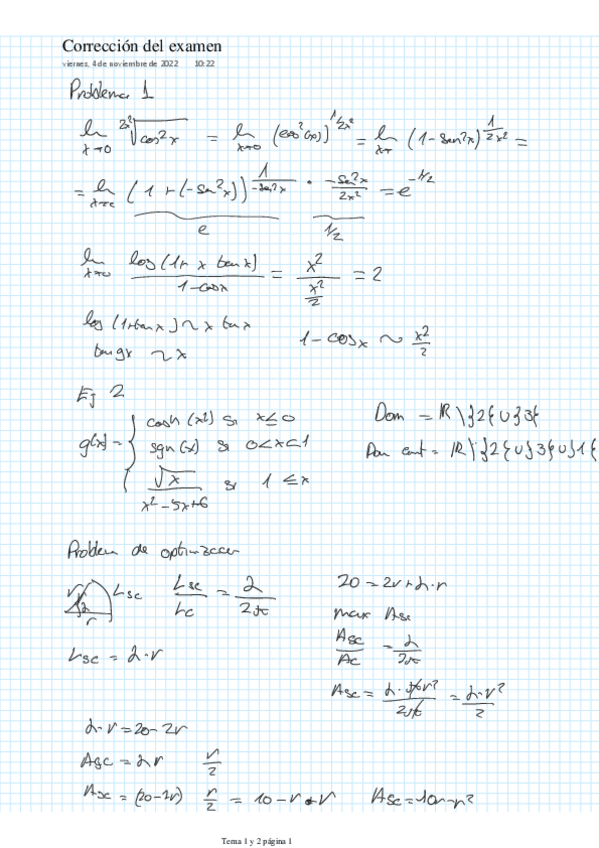 Corrección del examen
viernes, 4 de noviembre de 2022 10:22
Problema 1
lim x→0 2x²√cos²x = lim x→0 (cos²(x))^1/2x² = lim x→ (1-sen²x)^1/2x² =
= lim x→0 (1+(-sen²x))^1/-sen²x · -sen²x/2x² = e^-1/2
e 1/2
lim x→0 log(1+ x tan x)/1-cosx = x²/x²/2 = 2
log (1+tan x) ~ x tan x
1 - cosx ~ x²/2
tang x ~ x
Ej 2
cosh (x²) si x≤0
Dom = ℝ\}2{∪}3{
g(x) = { sgn(x) si 0<x<1
Dom cont = ℝ\}2{∪}3{∪}1{
√x/x²-5x+6 si 1≤x
Problema de optimización
r r Lsc
Lsc/Lc = 2/2π
20 = 2r+2·r
max Asc
Asc/Ac = 2/2π
Lsc = 2·r
Asc = 2·πr²/2π = 2·r²/2
2·r = 20-2r
Asc = 2r r/2
Asc = (20-2r) r/2 = 10-r·r
Asc = 10r-r²
Tema 1 y 2 página 1